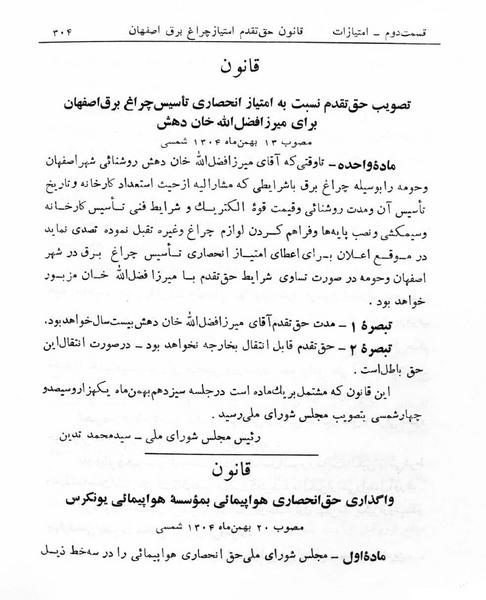 قسمت دوم ــ امتیازات قانون حق تقدم امتیاز چراغ برق اصفهان ۳۰۴
قانون
تصویب حق تقدم نسبت به امتیاز انحصاری تأسیس چراغ برق اصفهان
برای میرزا فضل‌الله خان دهش
مصوب ۱۳ بهمن ماه ۱۳۰۴ شمسی
مادهٔ واحده ــ تا وقتی که آقای میرزا فضل‌الله خان دهش روشنائی شهر اصفهان
و حومه را بوسیله چراغ برق با شرایطی که مشارالیه از حیث استعداد کارخانه و تاریخ
تأسیس آن ومدت روشنائی وقیمت قوهٔ الکتریك و شرایط فنی تأسیس کارخانه
وسیمکشی و نصب پایه‌ها وفراهم کردن لوازم چراغ وغیره تقبل نموده تصدی نماید
در موقع اعلان برای اعطای امتیاز انحصاری تأسیس چراغ برق در شهر
اصفهان وحومه در صورت تساوی شرایط حق تقدم با میرزا فضل‌الله خان مزبور
خواهد بود .
تبصرهٔ ۱ ــ مدت حق تقدم آقای میرزا فضل‌الله خان دهش بیست سال خواهدبود.
تبصرهٔ ۲ ــ حق تقدم قابل انتقال بخارجه نخواهد بود ــ درصورت انتقال این
حق باطل است .
این قانون که مشتمل بریك ماده است درجلسه سیزدهم بهمن ماه یکهزاروسیصدو
چهارشمسی بتصویب مجلس شورای ملی رسید .
رئیس مجلس شورای ملی ــ سیدمحمد تدین
قانون
واگذاری حق انحصاری هواپیمائی بمؤسسهٔ هواپیمائی یونکرس
مصوب ۲۰ بهمن ماه ۱۳۰۴ شمسی
مادهٔ اول ــ مجلس شورای ملی حق انحصاری هواپیمائی را در سه خط ذیل